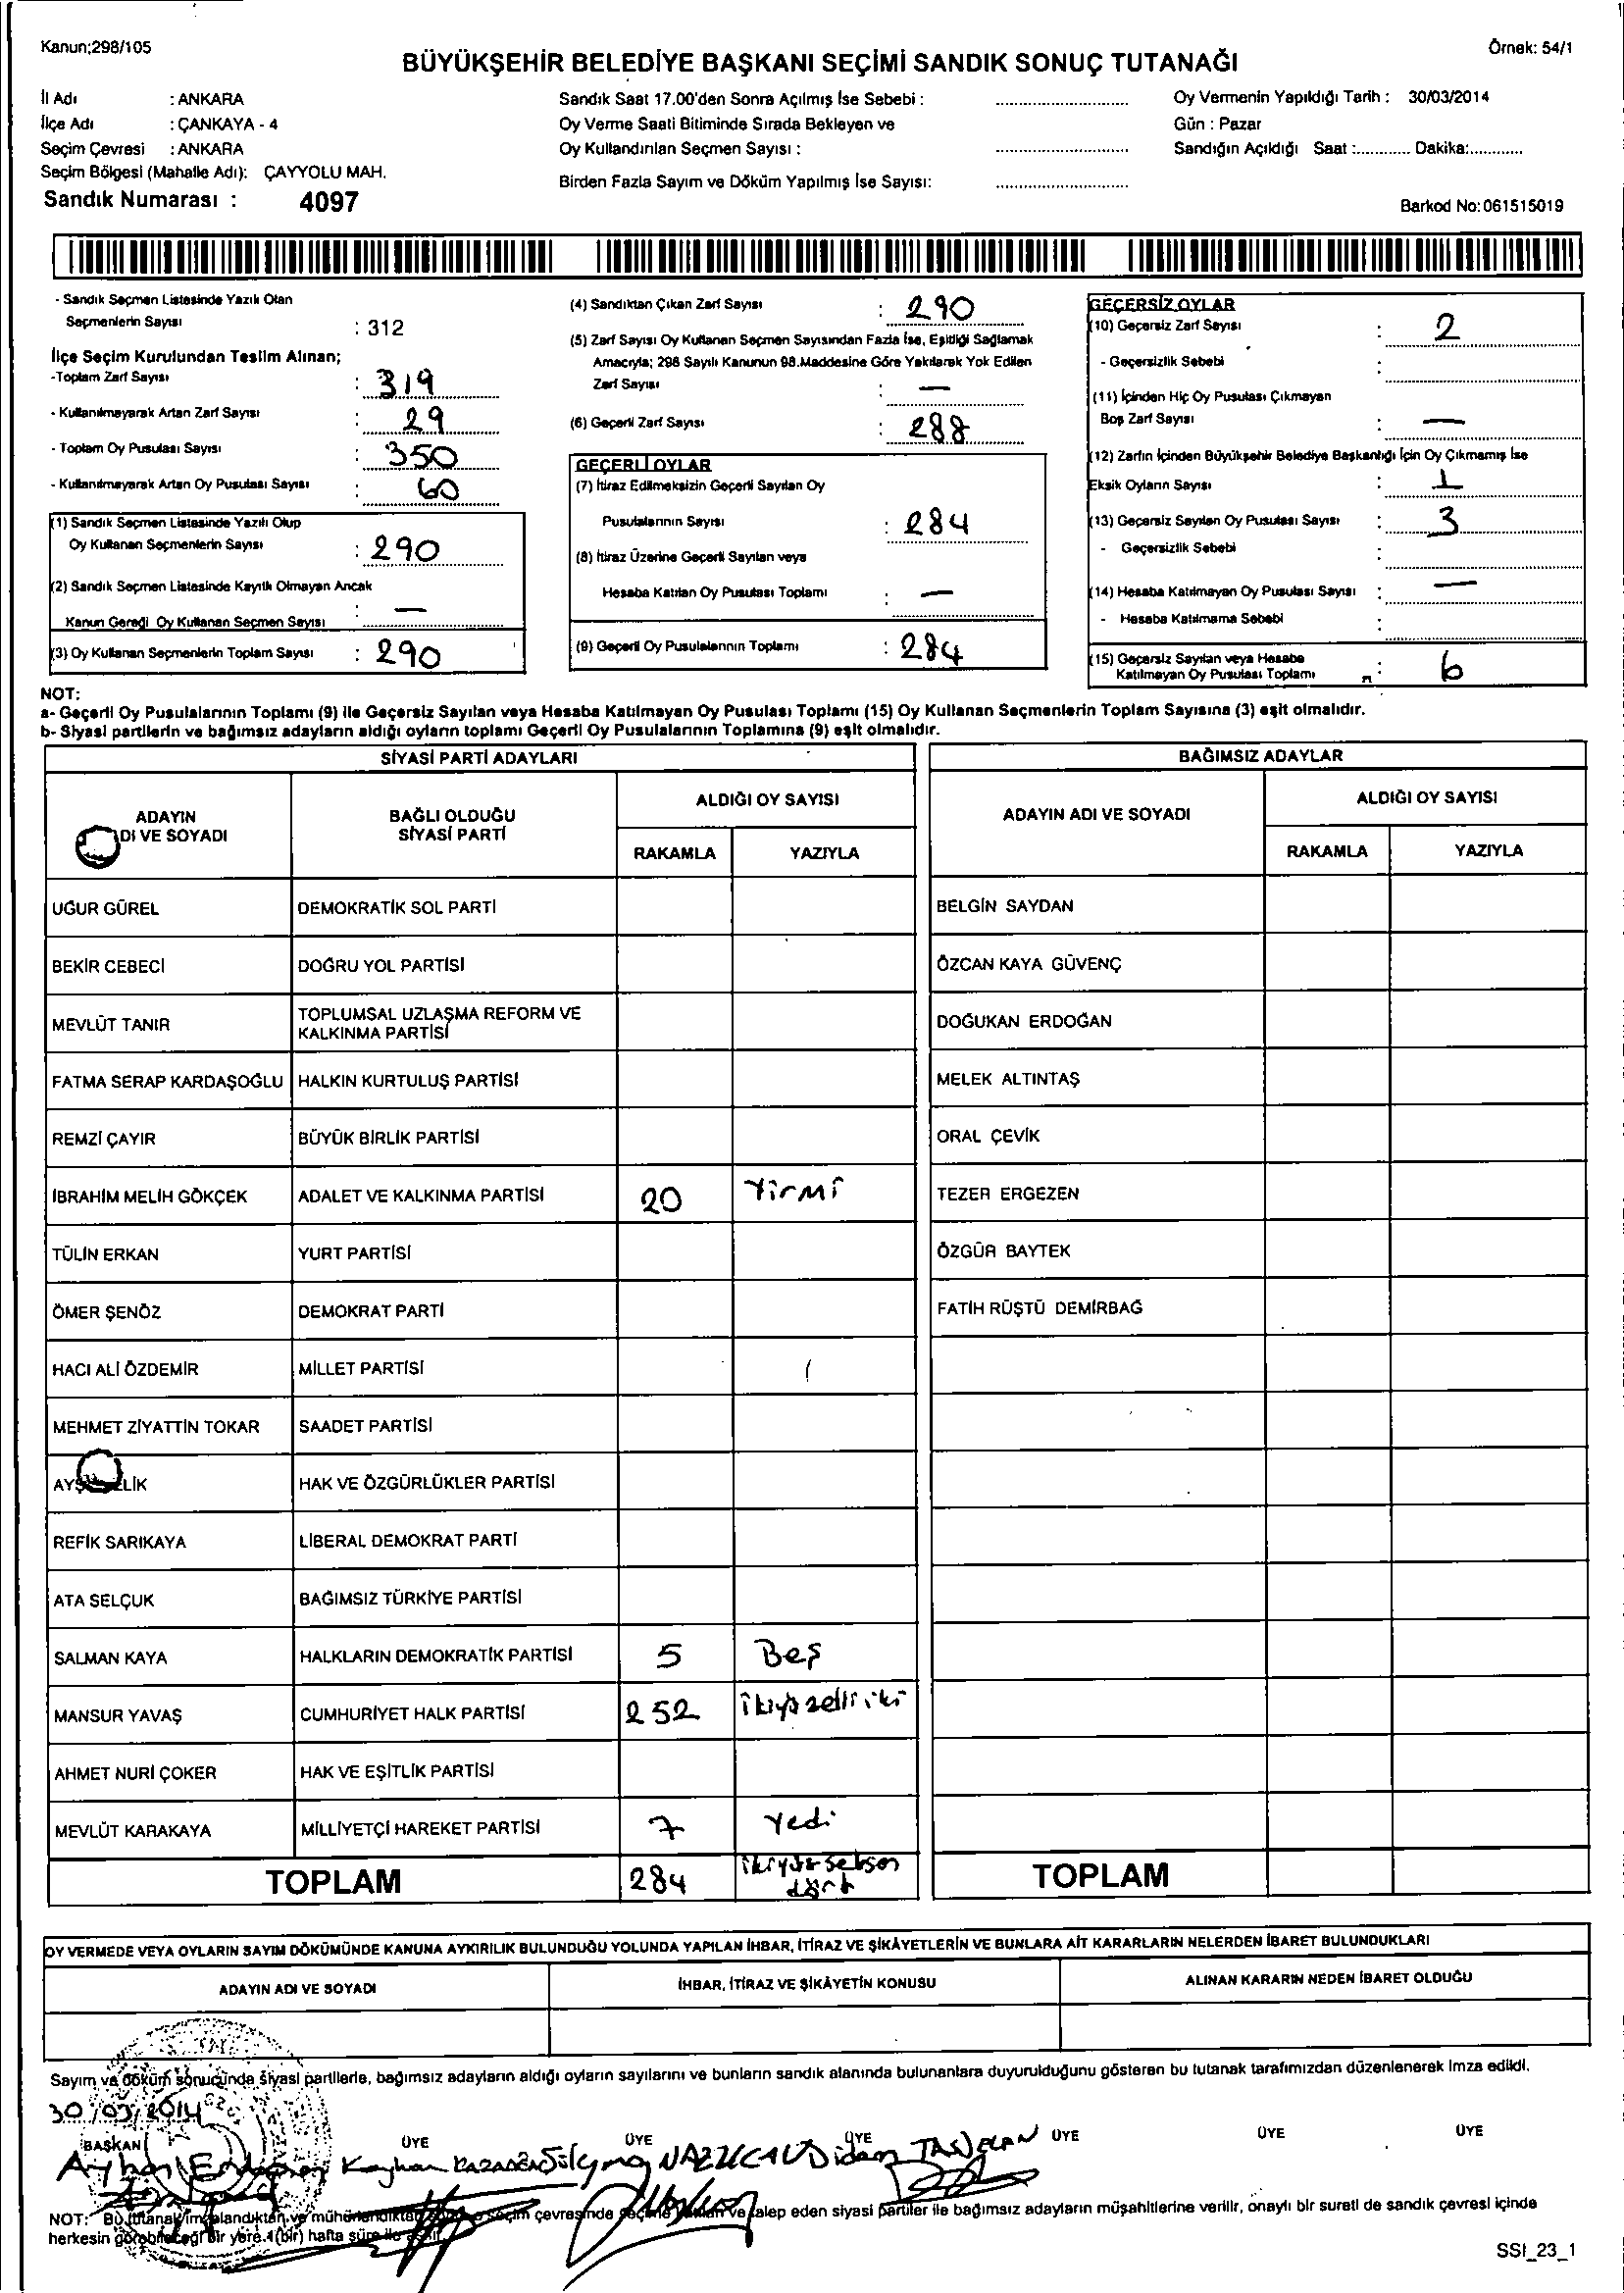 Kanun;298/105
Örnek: 54/1
BÜYÜKŞEHİR BELEDİYE BAŞKANI SEÇİMİ SANDIK SONUÇ TUTANAĞI
İl Adı : ANKARA
İlçe Adı : ÇANKAYA - 4
Seçim Çevresi : ANKARA
Seçim Bölgesi (Mahalle Adı): ÇAYYOLU MAH.
Sandık Numarası : 4097
Sandık Saat 17.00'den Sonra Açılmış İse Sebebi :
Oy Verme Saati Bitiminde Sırada Bekleyen ve
Oy Kullandırılan Seçmen Sayısı :
Birden Fazla Sayım ve Döküm Yapılmış İse Sayısı:
Oy Vermenin Yapıldığı Tarih : 30/03/2014
Gün : Pazar
Sandığın Açıldığı Saat :............ Dakika:............
Barkod No:061515019
- Sandık Seçmen Listesinde Yazılı Olan
Seçmenlerin Sayısı : 312
İlçe Seçim Kurulundan Teslim Alınan;
-Toplam Zarf Sayısı : 319
- Kullanılmayarak Artan Zarf Sayısı : 29
- Toplam Oy Pusulası Sayısı : 350
- Kullanılmayarak Artan Oy Pusulası Sayısı : 60
(1) Sandık Seçmen Listesinde Yazılı Olup
Oy Kullanan Seçmenlerin Sayısı : 290
(2) Sandık Seçmen Listesinde Kayıtlı Olmayan Ancak
Kanun Gereği Oy Kullanan Seçmen Sayısı : —
(3) Oy Kullanan Seçmenlerin Toplam Sayısı : 290
(4) Sandıktan Çıkan Zarf Sayısı : 290
(5) Zarf Sayısı Oy Kullanan Seçmen Sayısından Fazla İse, Eşitliği Sağlamak
Amacıyla; 298 Sayılı Kanunun 98.Maddesine Göre Yakılarak Yok Edilen
Zarf Sayısı : —
(6) Geçerli Zarf Sayısı : 288
GEÇERLİ OYLAR
(7) İtiraz Edilmeksizin Geçerli Sayılan Oy
Pusulalarının Sayısı : 284
(8) İtiraz Üzerine Geçerli Sayılan veya
Hesaba Katılan Oy Pusulası Toplamı : —
(9) Geçerli Oy Pusulalarının Toplamı : 284
GEÇERSİZ OYLAR
(10) Geçersiz Zarf Sayısı : 2
- Geçersizlik Sebebi :
(11) İçinden Hiç Oy Pusulası Çıkmayan
Boş Zarf Sayısı : —
(12) Zarfın İçinden Büyükşehir Belediye Başkanlığı İçin Oy Çıkmamış İse
Eksik Oyların Sayısı : 1
(13) Geçersiz Sayılan Oy Pusulası Sayısı : 3
- Geçersizlik Sebebi :
(14) Hesaba Katılmayan Oy Pusulası Sayısı : —
- Hesaba Katılmama Sebebi :
(15) Geçersiz Sayılan veya Hesaba
Katılmayan Oy Pusulası Toplamı : 6
NOT:
a- Geçerli Oy Pusulalarının Toplamı (9) ile Geçersiz Sayılan veya Hesaba Katılmayan Oy Pusulası Toplamı (15) Oy Kullanan Seçmenlerin Toplam Sayısına (3) eşit olmalıdır.
b- Siyasi partilerin ve bağımsız adayların aldığı oyların toplamı Geçerli Oy Pusulalarının Toplamına (9) eşit olmalıdır.
SİYASİ PARTİ ADAYLARI
ADAYIN
ADI VE SOYADI
BAĞLI OLDUĞU
SİYASİ PARTİ
ALDIĞI OY SAYISI
RAKAMLA YAZIYLA
UĞUR GÜREL DEMOKRATİK SOL PARTİ
BEKİR CEBECİ DOĞRU YOL PARTİSİ
MEVLÜT TANIR TOPLUMSAL UZLAŞMA REFORM VE
KALKINMA PARTİSİ
FATMA SERAP KARDAŞOĞLU HALKIN KURTULUŞ PARTİSİ
REMZİ ÇAYIR BÜYÜK BİRLİK PARTİSİ
İBRAHİM MELİH GÖKÇEK ADALET VE KALKINMA PARTİSİ 20 Yirmi
TÜLİN ERKAN YURT PARTİSİ
ÖMER ŞENÖZ DEMOKRAT PARTİ
HACI ALİ ÖZDEMİR MİLLET PARTİSİ
MEHMET ZİYATTİN TOKAR SAADET PARTİSİ
HAK VE ÖZGÜRLÜKLER PARTİSİ
REFİK SARIKAYA LİBERAL DEMOKRAT PARTİ
ATA SELÇUK BAĞIMSIZ TÜRKİYE PARTİSİ
SALMAN KAYA HALKLARIN DEMOKRATİK PARTİSİ 5 Beş
MANSUR YAVAŞ CUMHURİYET HALK PARTİSİ 252 ikiyüzelli iki
AHMET NURİ ÇOKER HAK VE EŞİTLİK PARTİSİ
MEVLÜT KARAKAYA MİLLİYETÇİ HAREKET PARTİSİ 7 Yedi
TOPLAM 284 ikiyüzseksen
dört
BAĞIMSIZ ADAYLAR
ADAYIN ADI VE SOYADI
ALDIĞI OY SAYISI
RAKAMLA YAZIYLA
BELGİN SAYDAN
ÖZCAN KAYA GÜVENÇ
DOĞUKAN ERDOĞAN
MELEK ALTINTAŞ
ORAL ÇEVİK
TEZER ERGEZEN
ÖZGÜR BAYTEK
FATİH RÜŞTÜ DEMİRBAĞ
TOPLAM
OY VERMEDE VEYA OYLARIN SAYIM DÖKÜMÜNDE KANUNA AYKIRILIK BULUNDUĞU YOLUNDA YAPILAN İHBAR, İTİRAZ VE ŞİKÂYETLERİN VE BUNLARA AİT KARARLARIN NELERDEN İBARET BULUNDUKLARI
ADAYIN ADI VE SOYADI İHBAR, İTİRAZ VE ŞİKÂYETİN KONUSU ALINAN KARARIN NEDEN İBARET OLDUĞU
Sayım ve döküm sonucunda siyasi partilerle, bağımsız adayların aldığı oyların sayılarını ve bunların sandık alanında bulunanlara duyurulduğunu gösteren bu tutanak tarafımızdan düzenlenerek imza edildi.
30/03/2014
BAŞKAN ÜYE ÜYE ÜYE ÜYE ÜYE ÜYE
Ayhan Kayhan Didem
NOT: Bu tutanak imzalandıktan ve mühürlendikten seçim çevresinde talep eden siyasi partiler ile bağımsız adayların müşahitlerine verilir, onaylı bir sureti de sandık çevresi içinde
herkesin görebileceği bir yere 1(bir) hafta süre ile asılır.
SSI_23_1